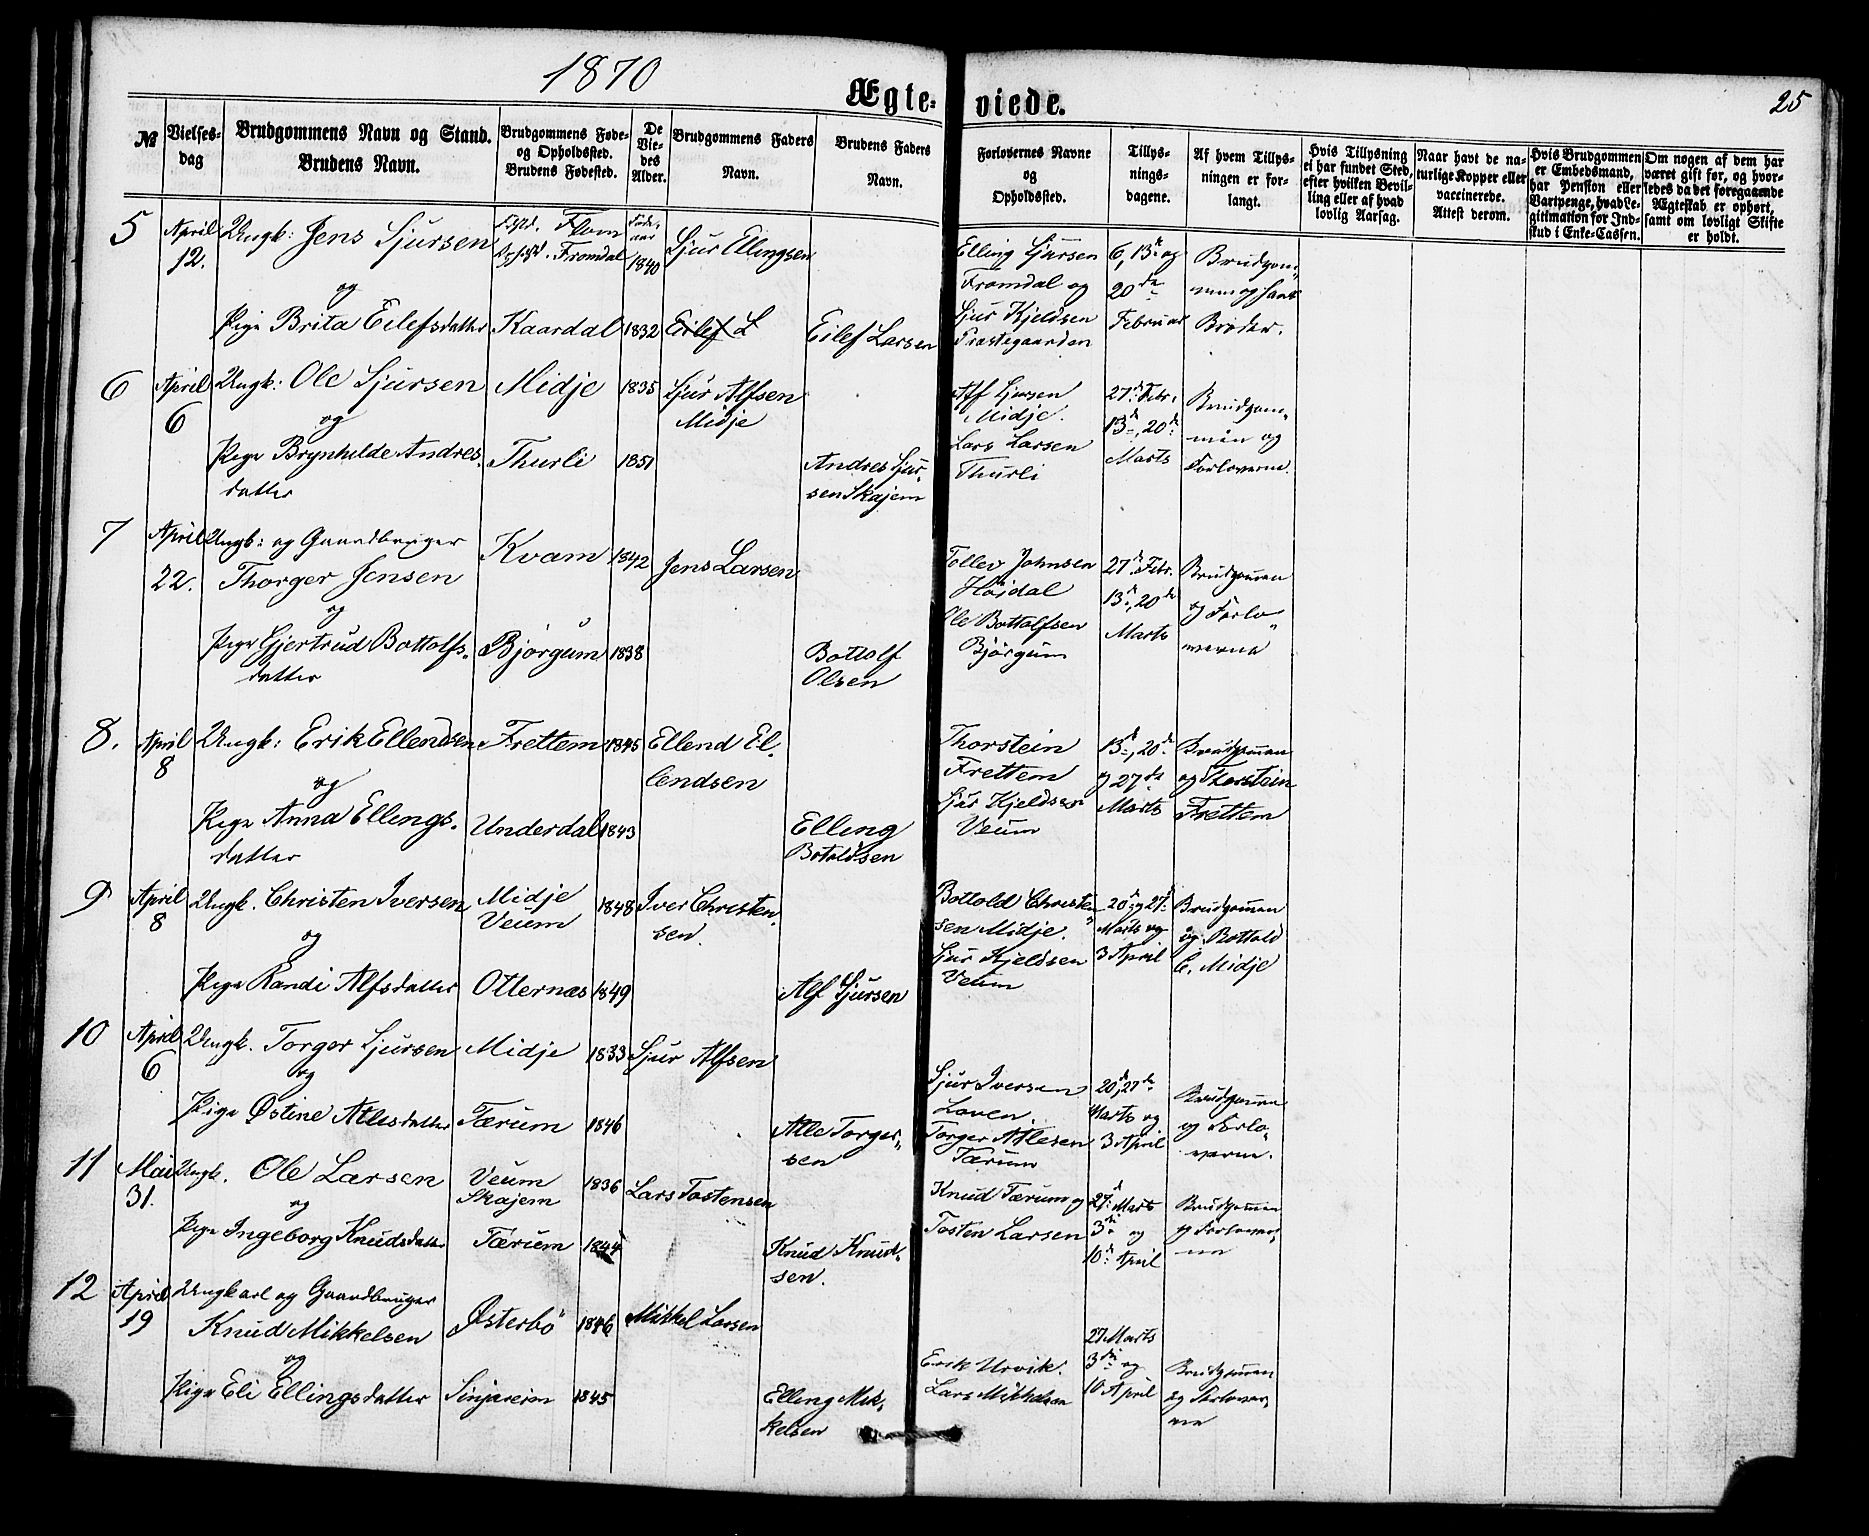 1870
Ægte- viede.
25
№
Vielses-
dag
Brudgommens Navn og Stand.
Brudens Navn.
Brudgommens Føde-
og Opholdssted.
Brudens Fødested.
De
Vie-
des
Alder.
Brudgommens Faders
Navn.
Brudens Faders
Navn.
Forlovernes Navne
og
Opholdssted.
Tillys-
nings-
dagene.
Af hvem Tillys-
ningen er for-
langt.
Hvis Tillysning
ei har fundet Sted,
efter hvilken Bevil-
ling eller af hvad
lovlig Aarsag.
Naar havt de na-
turlige Kopper eller
vaccinerede.
Attest derom.
Hvis Brudgommen
er Embedsmand,
har Pension eller
Vartpenge, hvad Le-
gitimation for Ind-
skud i Enke-Cassen.
Om nogen af dem har
været gift før, og hvor-
ledes da det foregaaende
Ægteskab er ophørt,
samt om lovligt Skifte
er holdt.
5
April
12.
Ungk: Jens Sjursen
og
Pige Brita Eilefsdatter
Flom
Fromdal
Kaardal
Føde-
aar
1840
1832
Sjur Ellingsen
Eilef L
Eilef Larsen
Elling Sjursen
Fromdal og
Sjur Kjeldsen
Præstegaarden
6, 13de og
20de
Februar
Brudgom-
men og hans
Broder.
6
April
6
Ungk: Ole Sjursen
og
Pige Brynhilde Andres-
datter
Midje
Thurli
1835
1851
Sjur Alfsen
Midje
Andres Sjur-
sen Skajem
Alf Sjursen
Midje.
Lars Larsen
Thurli
27de Febr.
13de, 20de
Marts
Brudgom-
men og
Forloverne.
7
April
22.
Ungk: og Gaardbruger
Thorger Jensen
og
Pige Gjertrud Bottolfs-
datter
Kvam
Bjørgum
1842
1838
Jens Larsen
Bottolf
Olsen
Tollev Johnsen
Høidal
Ole Bottolfsen
Bjørgum
27de Febr.
13de, 20de
Marts
Brudgommen
og Forlo-
verne
8.
April
8
Ungk: Erik Ellendsen
og
Pige Anna Ellings-
datter
Frettem
Underdal
1845
1843
Ellend El-
lendsen
Elling
Botoldsen
Thorstein
Frettem
Sjur Kjeldsen
Veum
13de, 20de
og 27de
Marts
Brudgommen
og Thorstein
Frettem
9
April
8
Ungk. Christen Iversen
og
Pige Randi Alfsdatter
Midje
Veum
Otternæs
1848
1849
Iver Christen-
sen.
Alf Sjursen
Bottold Christen-
sen Midje.
Sjur Kjeldsen
Veum
20de og 27de
Marts og
3 April
Brudgommen
og Bottold
C. Midje
10
April
6
Ungk. Torger Sjursen
og
Pige Østine Atlesdatter
Midje
Færum
1833
1846
Sjur Alfsen
Atle Torger-
sen
Sjur Iversen
Loven.
Torger Atlesen
Færum
20de, 27de
Marts og
3 April
Brudgommen
og Forlo-
verne.
11
Mai
31.
Ungk. Ole Larsen
og
Pige Ingeborg Knudsdatter
Veum
Skajem
Færum
1836
1844
Lars Tostensen
Knud Knud-
sen.
Knud Færum og
Tosten Larsen
27de Marts
3die og
10de April
Brudgommen
og Forlover-
ne
12
April
19
Ungkarl og Gaardbruger
Knud Mikkelsen
og
Pige Eli Ellingsdatter
Østerbø
Sinjareim
1846
1845
Mikkel Larsen
Elling Mik-
kelsen
Erik Urvik.
Lars Mikkelsen
27 Marts
3die og
10 April
Brudgommen
og Forlover-
ne